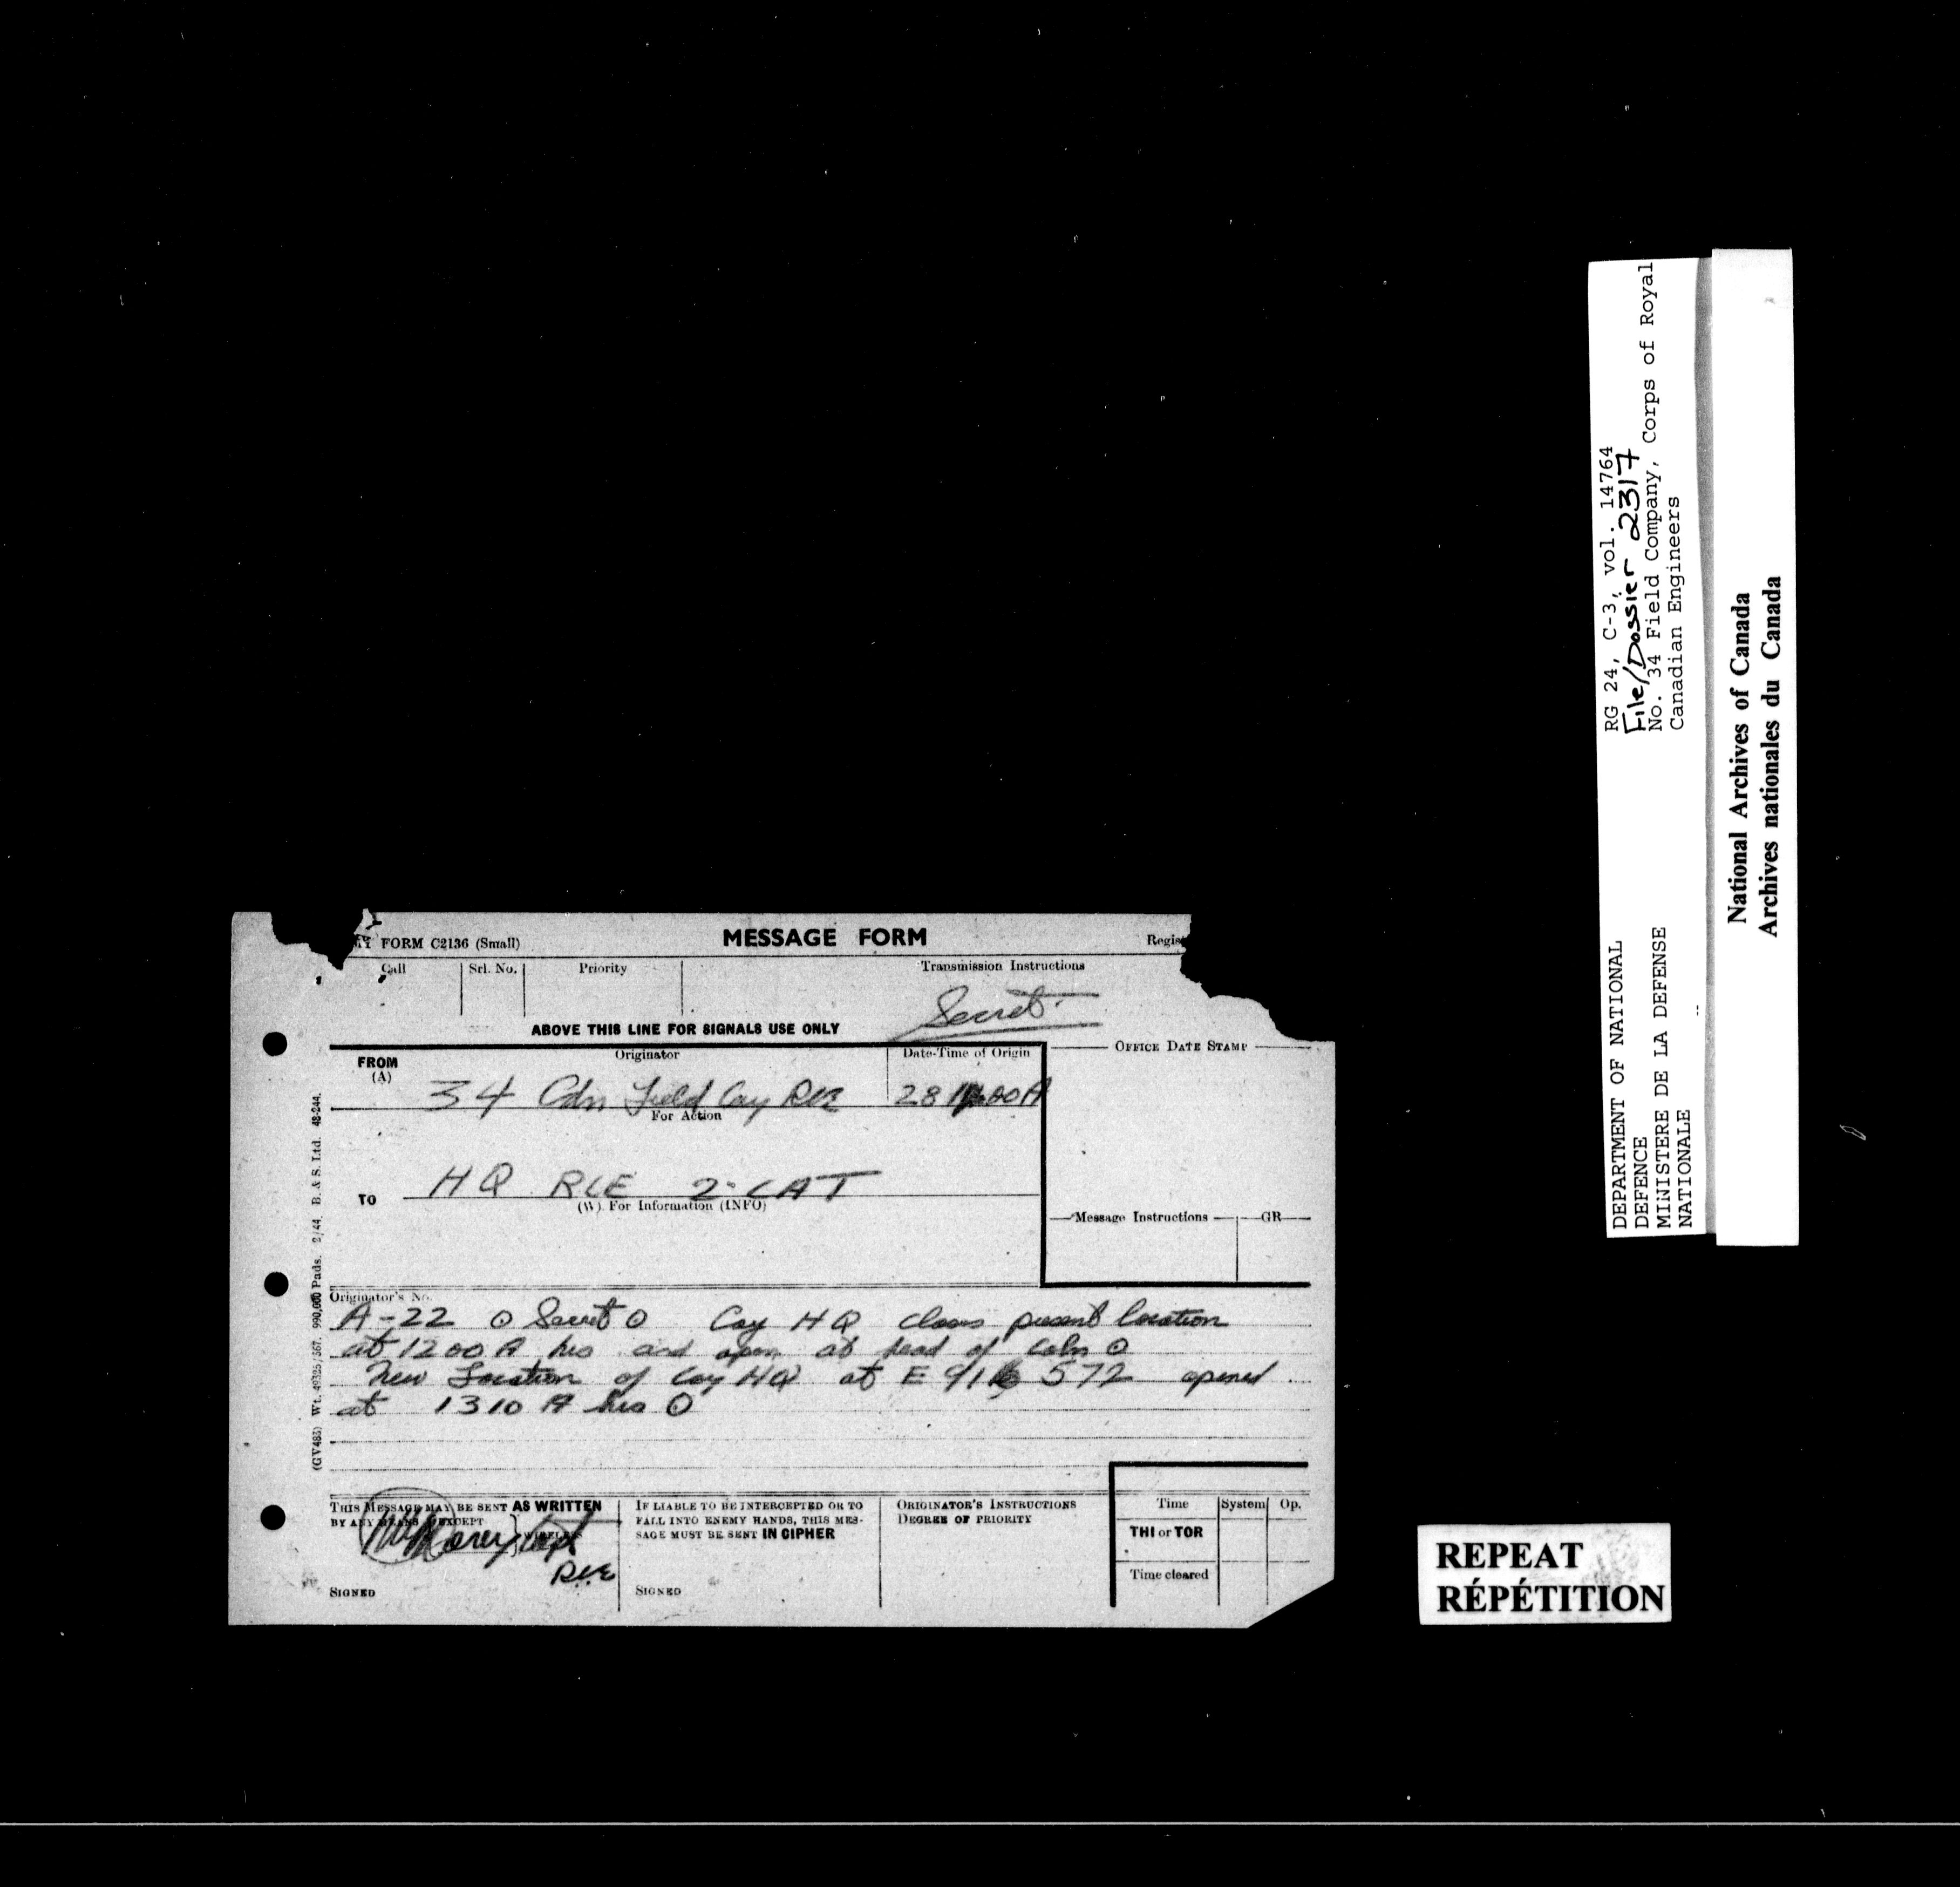 MY FORM C2136 (Small)
MESSAGE FORM
Regis
Call
Srl. No.
Priority
Transmission Instructions
Secret
ABOVE THIS LINE FOR SIGNALS USE ONLY
FROM
(A)
Originator
Date-Time of Origin
OFFICE DATE STAMP
34 Cdn Field Coy RCE
28
00A
For Action
TO
HQ RCE 2 CAT
(W) For Information (INFO)
Message Instructions
GR
Originator's No.
A-22 O Secret O Coy HQ closes present location
at 1200 A hrs and open at head of coln O
New Location of Coy HQ at E 91 572 opened
at 1310 A hrs O
THIS MESSAGE MAY BE SENT AS WRITTEN
BY ANY MEANS EXCEPT
WIRELESS
Capt
RCE
SIGNED
IF LIABLE TO BE INTERCEPTED OR TO
FALL INTO ENEMY HANDS, THIS MES-
SAGE MUST BE SENT IN CIPHER
SIGNED
ORIGINATOR'S INSTRUCTIONS
DEGREE OF PRIORITY
Time
System
Op.
THI or TOR
Time cleared
(GV483) Wt. 49325/367. 990,000 Pads. 2/44. B. & S. Ltd. 48-244.
RG 24, C-3, vol. 14764
File/Dossier 2317
No. 34 Field Company, Corps of Royal
Canadian Engineers
DEPARTMENT OF NATIONAL
DEFENCE
MINISTERE DE LA DEFENSE
NATIONALE
--
National Archives of Canada
Archives nationales du Canada
REPEAT
RÉPÉTITION